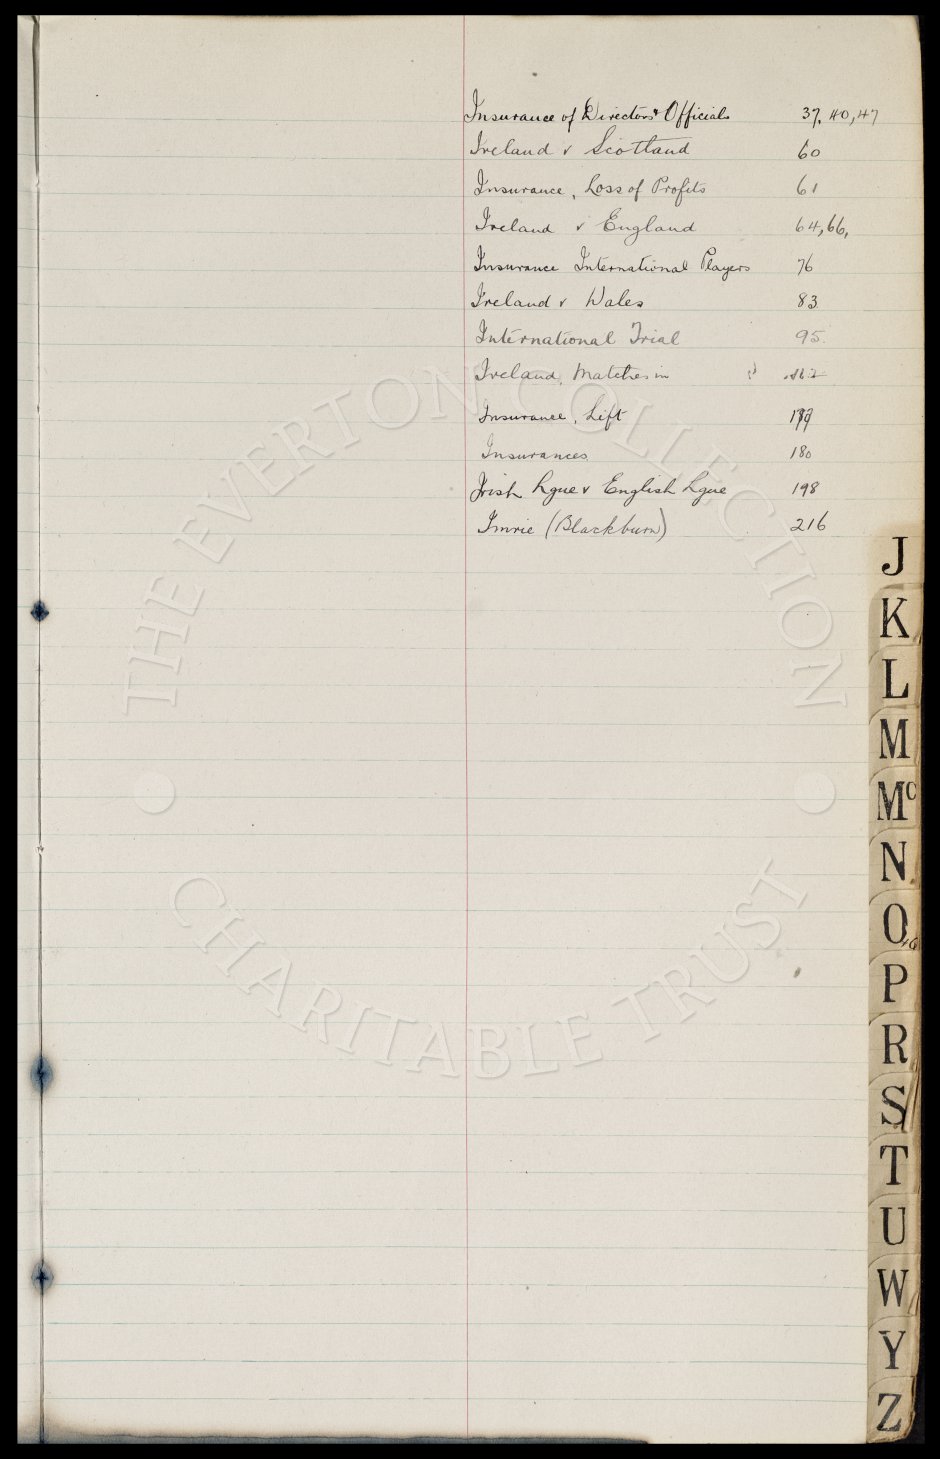 Insurance of Directors & Officials 37, 40, 47
Ireland v Scotland 60
Insurance, Loss of Profits 61
Ireland v England 64, 66,
Insurance International Players 76
Ireland v Wales 83
International Trial 95
Ireland, Matches in 162
Insurance, Lift
Insurances 180
Irish Lgue v English Lgue 198
Imrie (Blackburn) 216
J
K
L
M
Mc
N
O
P
R
S
T
U
W
Y
Z
THE EVERTON COLLECTION
CHARITABLE TRUST